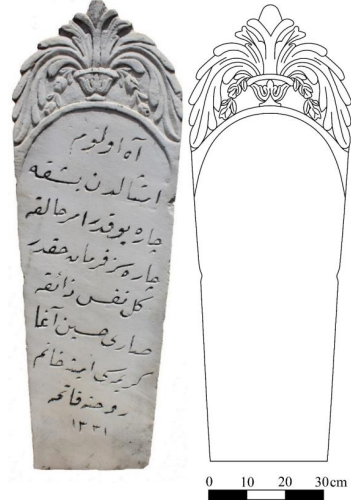 آه اولوم
امثالدن بشقه
چاره یوقدر امر خالقه
چاره سز فرمان حقدر
كل نفس ذائقه
صاری حسین آغا
كریمه‌سی امینه خانم
روحنه فاتحه
١٣٣١
0 10 20 30 cm